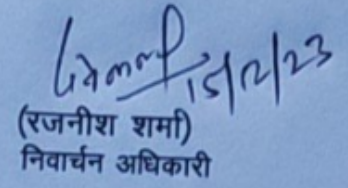 15/12/23
(रजनीश शर्मा)
निवार्चन अधिकारी